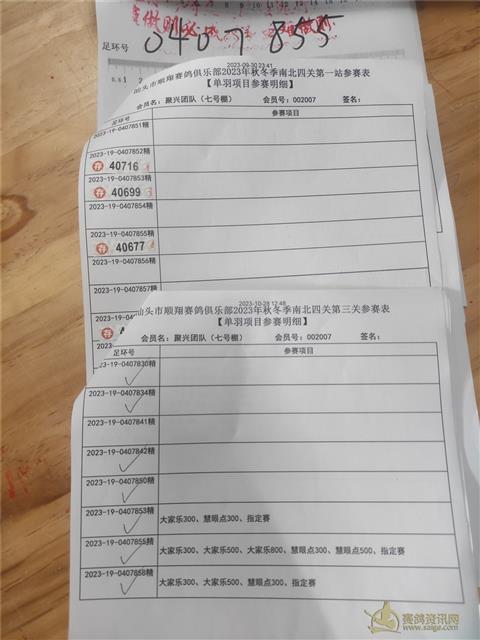 足环号 0407855
2023-09-30 23:41
汕头市顺翔赛鸽俱乐部2023年秋冬季南北四关第一站参赛表
【单羽项目参赛明细】
会员名：聚兴团队（七号棚） 会员号：002007 签名：
足环号 参赛项目
2023-19-0407851精
2023-19-0407852精
荐 40716
2023-19-0407853精
荐 40699
2023-19-0407854精
2023-19-0407855精
荐 40677
2023-19-0407856精
2023-19-0407857精
荐
2023-10-28 12:48
汕头市顺翔赛鸽俱乐部2023年秋冬季南北四关第三关参赛表
【单羽项目参赛明细】
会员名：聚兴团队（七号棚） 会员号：002007 签名：
足环号 参赛项目
2023-19-0407830精
2023-19-0407834精
2023-19-0407841精
2023-19-0407842精
2023-19-0407850精
2023-19-0407853精 大家乐300、慧眼点300、指定赛
2023-19-0407855精 大家乐300、大家乐500、大家乐800、慧眼点300、慧眼点500、指定赛
2023-19-0407858精 大家乐300、大家乐500、慧眼点300、指定赛
赛鸽资讯网
www.saige.com